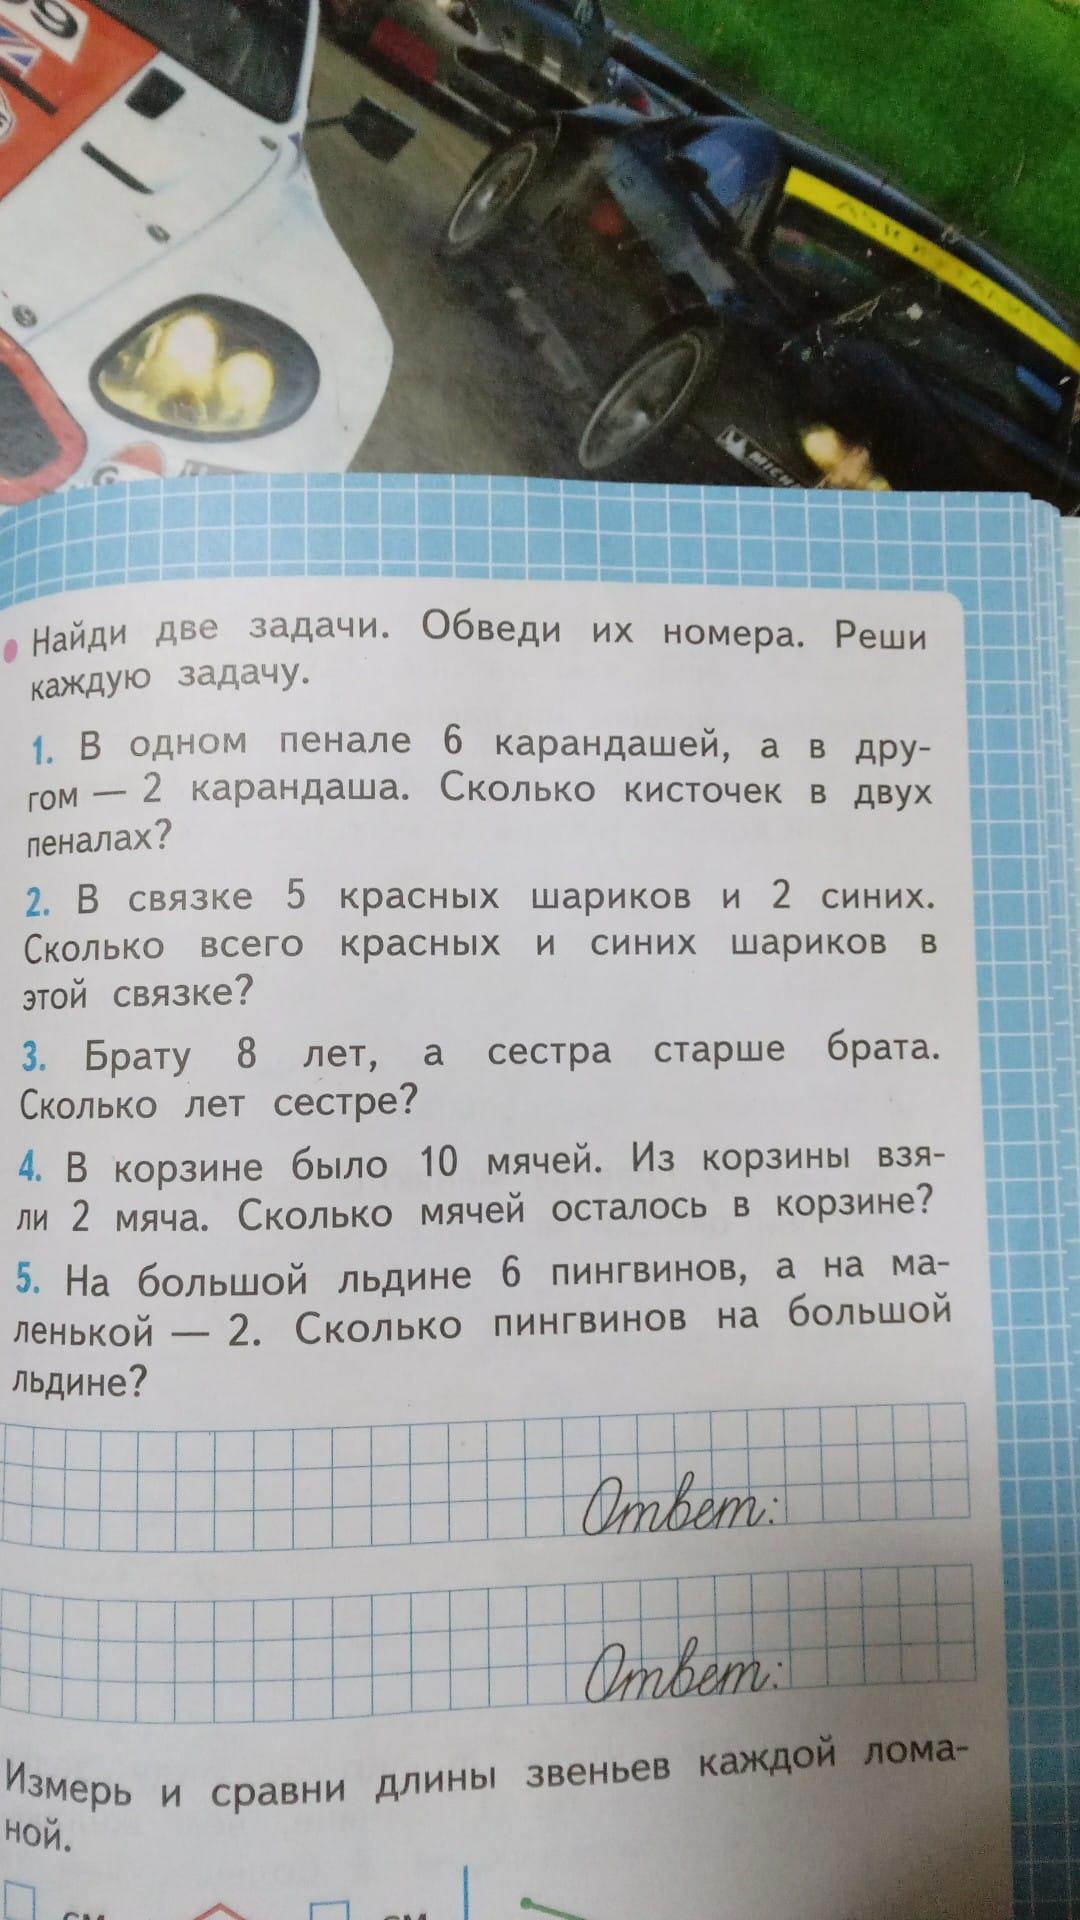 99
MICH
Найди две задачи. Обведи их номера. Реши
каждую задачу.
1. В одном пенале 6 карандашей, а в дру-
гом — 2 карандаша. Сколько кисточек в двух
пеналах?
2. В связке 5 красных шариков и 2 синих.
Сколько всего красных и синих шариков в
этой связке?
3. Брату 8 лет, а сестра старше брата.
Сколько лет сестре?
4. В корзине было 10 мячей. Из корзины взя-
ли 2 мяча. Сколько мячей осталось в корзине?
5. На большой льдине 6 пингвинов, а на ма-
ленькой — 2. Сколько пингвинов на большой
льдине?
Ответ:
Ответ:
Измерь и сравни длины звеньев каждой лома-
ной.
см см